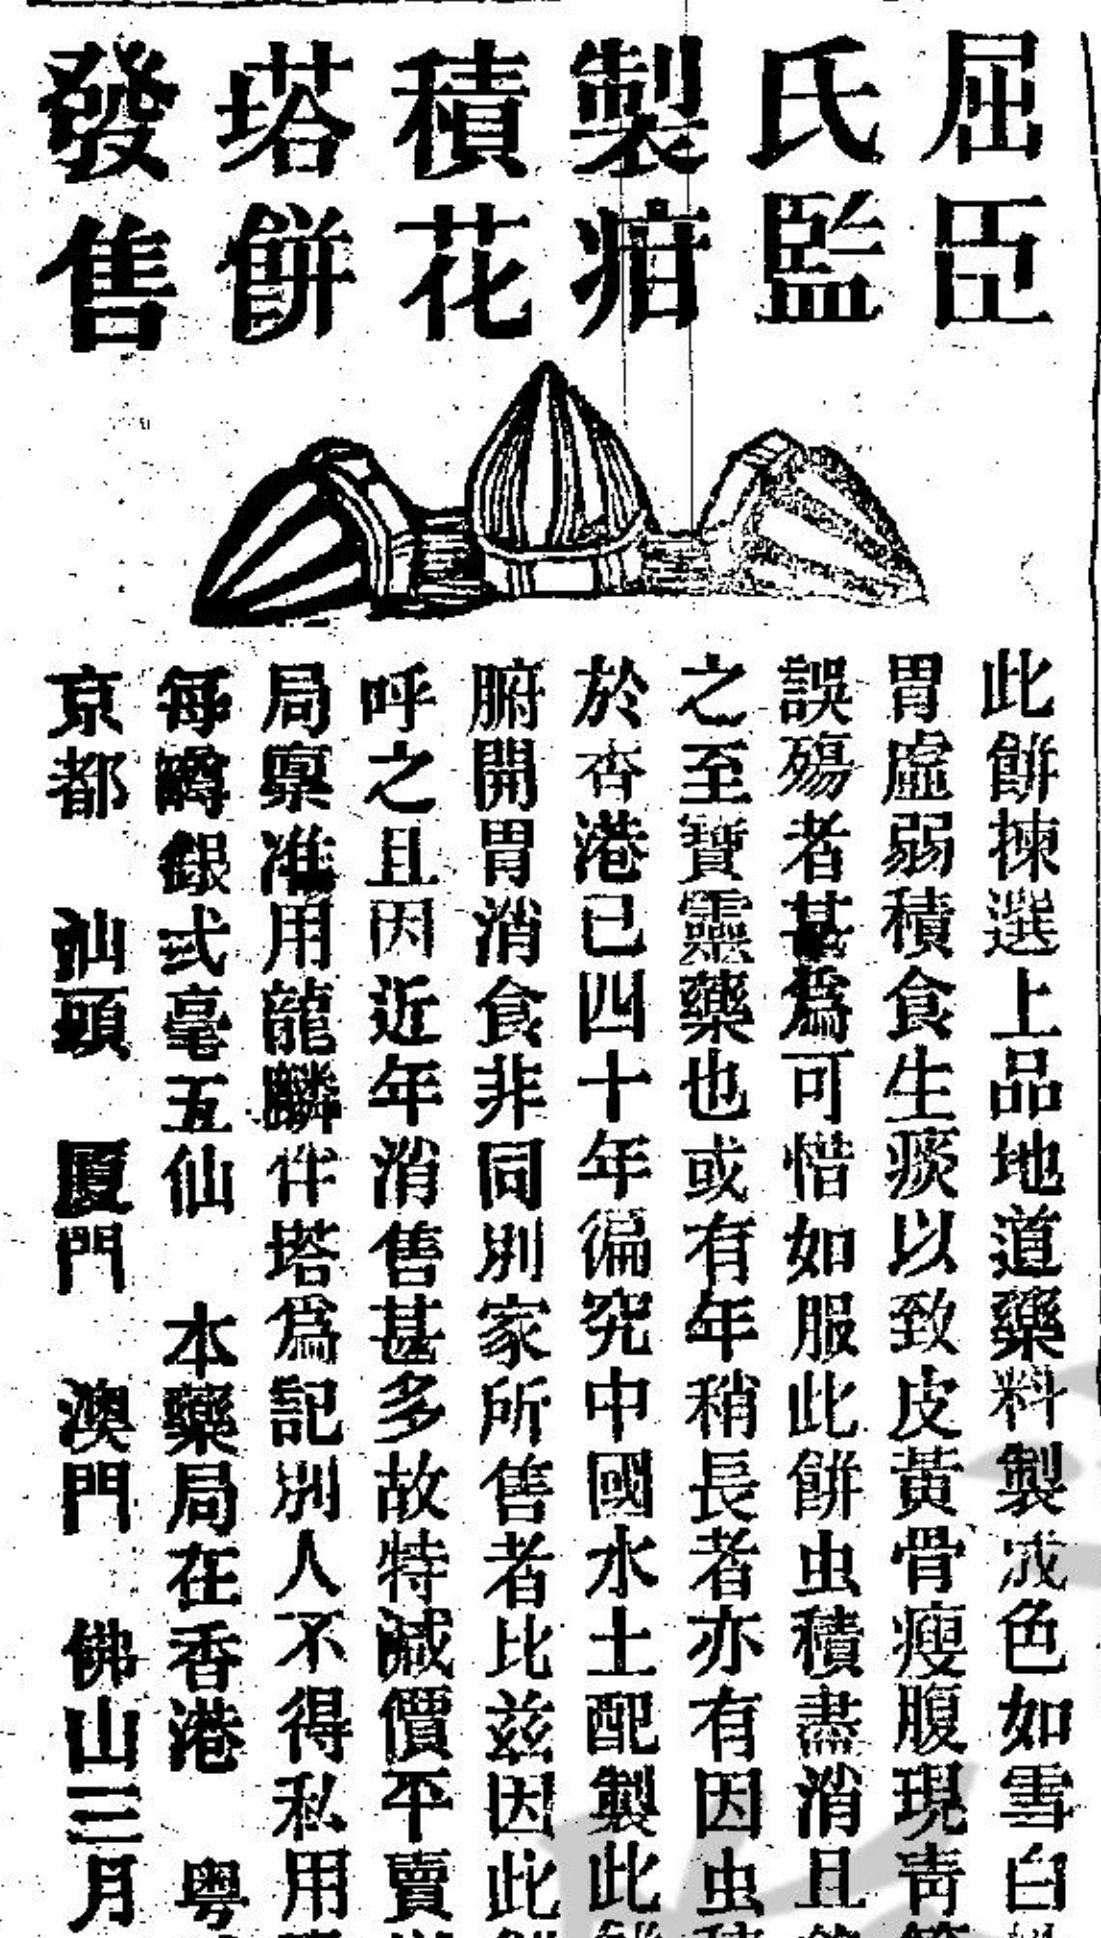 屈臣
氏監
製疳
積花
塔餅
發售
此餅揀選上品地道藥料製成色如雪白
胃虛弱積食生痰以致皮黃骨瘦腹現青
誤殤者甚為可惜如服此餅虫積盡消且
之至寶靈藥也或有年稍長者亦有因虫
於香港已四十年徧究中國水土配製此
腑開胃消食非同別家所售者比茲因此
呼之且因近年消售甚多故特減價平賣
局稟准用龍麟伴塔爲記別人不得私用
每罇銀弍毫五仙 本藥局在香港 粵
京都 汕頭 厦門 澳門 佛山 三月